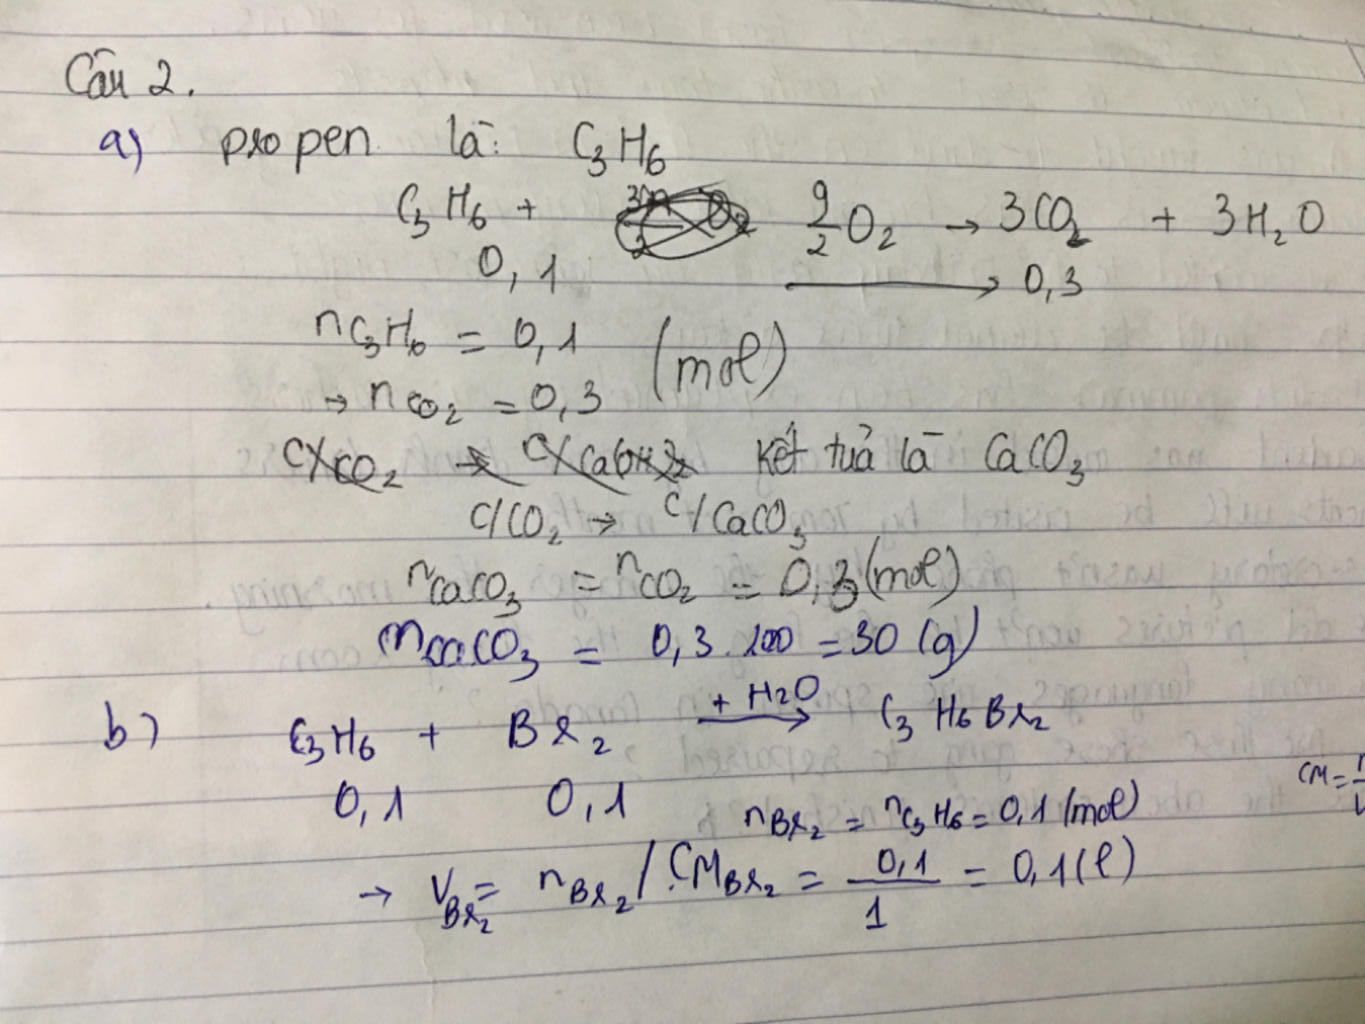 Câu 2.
a) propen là: C3H6
C3H6 + 9/2 O2 → 3CO2 + 3H2O
0,1 → 0,3
nC3H6 = 0,1
(mol)
→ nCO2 = 0,3
C/CO2 → C/Ca(OH)2 kết tủa là CaCO3
C/CO2 → C/CaCO3
nCaCO3 = nCO2 = 0,3 (mol)
mCaCO3 = 0,3.100 = 30 (g)
b) C3H6 + Br2 + H2O → C3H6Br2
0,1 0,1
nBr2 = nC3H6 = 0,1 (mol)
CM = n/V
→ VBr2 = nBr2 / CMBr2 = 0,1/1 = 0,1 (l)